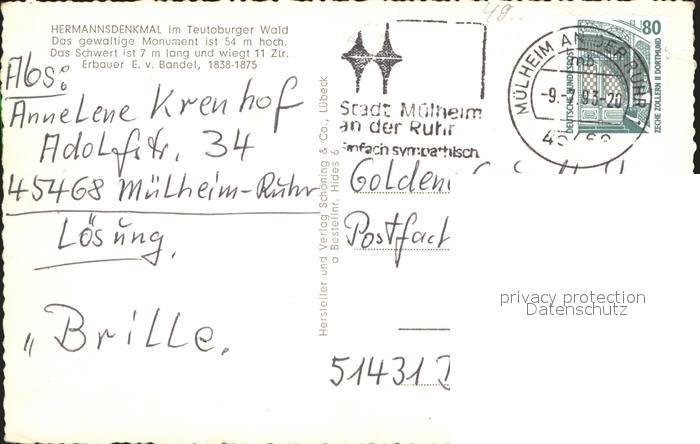 HERMANNSDENKMAL im Teutoburger Wald
Das gewaltige Monument ist 54 m hoch.
Das Schwert ist 7 m lang und wiegt 11 Ztr.
Erbauer E. v. Bandel, 1838-1875
Abs:
Annelene Krenhof
Adolfstr. 34
45468 Mülheim-Ruhr
Lösung.
„Brille.
Hersteller und Verlag Schöning & Co., Lübeck
Bestellnr. Hides 6
49..
Stadt Mülheim
an der Ruhr
Einfach sympathisch
MÜLHEIM AN DER RUHR
mb
-9.-
93-20
80
DEUTSCHE BUNDESPOST
ZECHE ZOLLERN II DORTMUND
Postfach
51431
privacy protection
Datenschutz